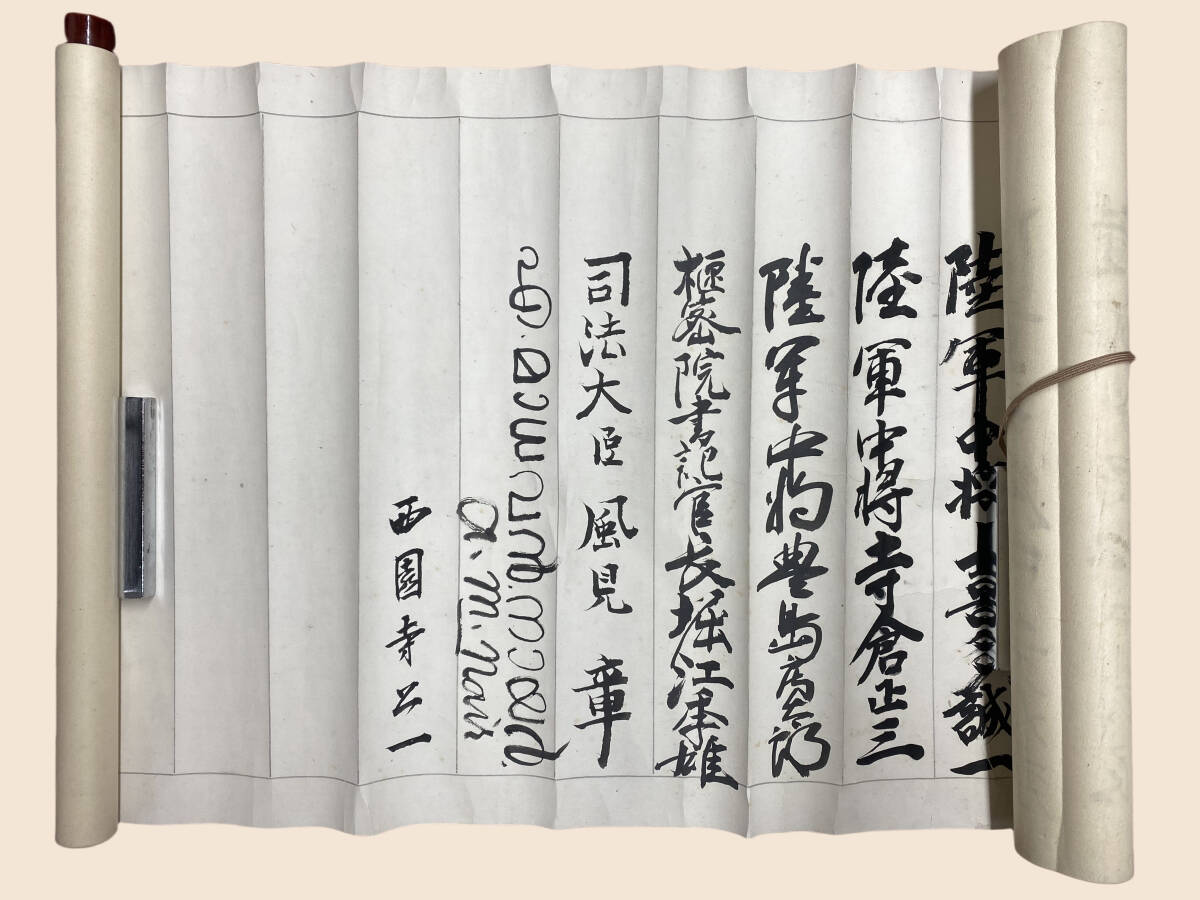 陸軍中將 喜多誠一
陸軍中將寺倉正三
陸軍中將豊島房太郎
枢密院書記官長堀江季雄
司法大臣 風見 章
A. M. Nair
西園寺公一